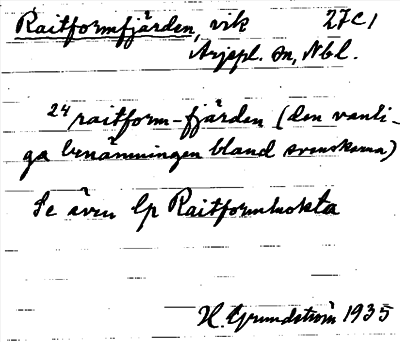 Raitformfjärden, vik 27C1
Arjepl. sn, Nbl.
24 raitform-fjärden (den vanli-
ga benämningen bland svenskarna)
Se även lp Raitformluokta
H. Grundström 1935